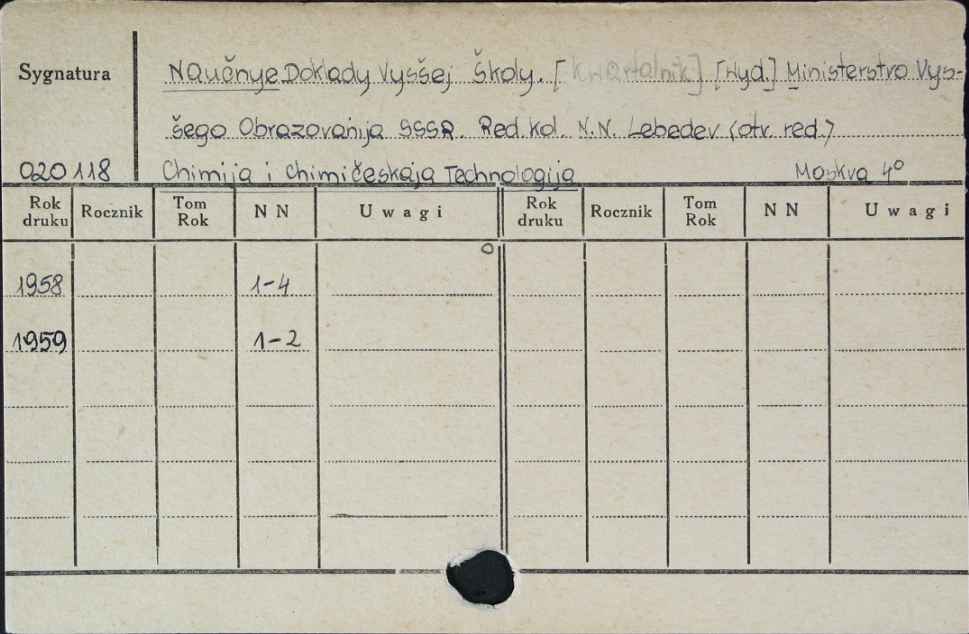 Sygnatura
Naučnye Doklady Vysšej Školy. [Kwartalnik] [Wyd.] Ministerstvo Vys-
šego Obrazovanija SSSR. Red. kol. N.N. Lebedev (otv. red.)
020118 Chimija i chimičeskaja Technologija Moskva 4°
Rok druku Rocznik Tom Rok NN Uwagi Rok druku Rocznik Tom Rok NN Uwagi
1958 1-4
1959 1-2